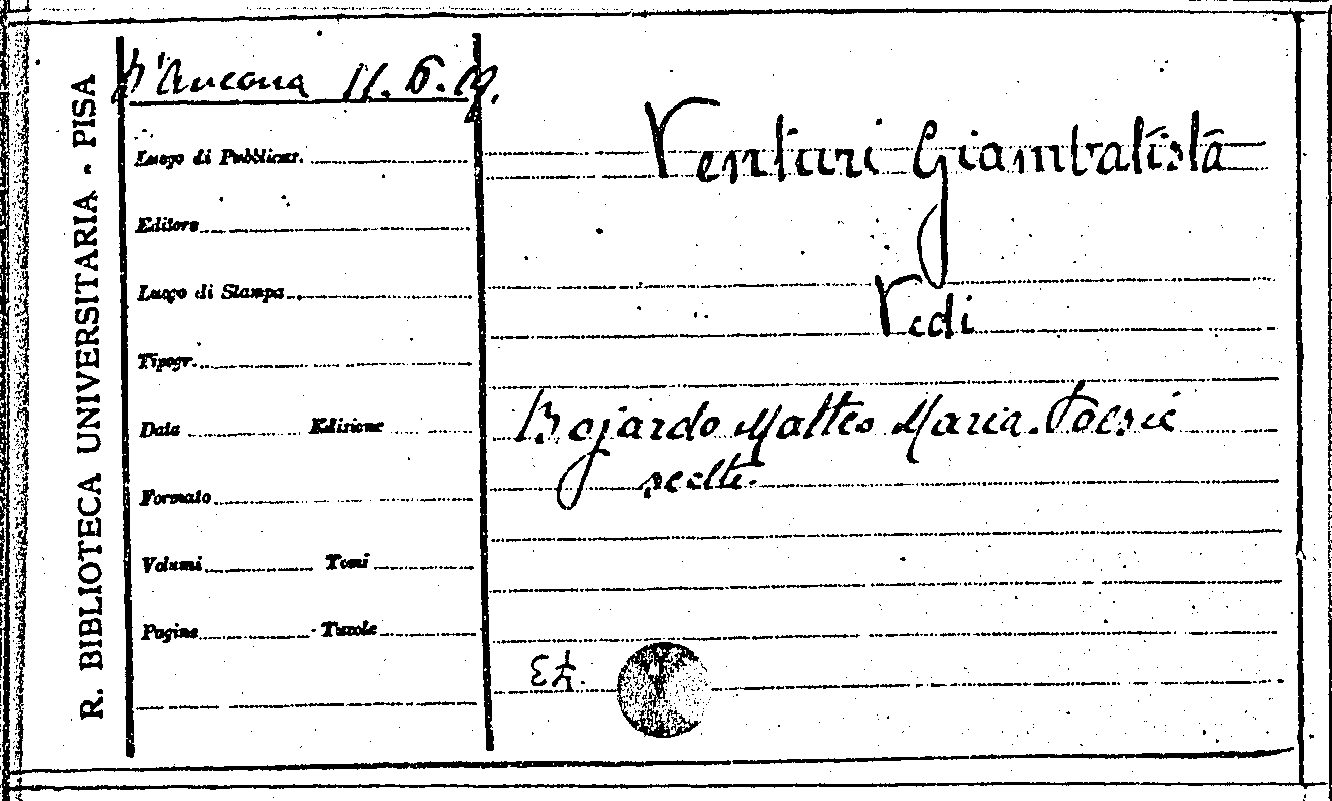 R. BIBLIOTECA UNIVERSITARIA - PISA
D'Ancona 11. 6. 19.
Luogo di Pubblicaz.
Editore
Luogo di Stampa
Tipogr.
Data Edizione
Formato
Volumi Tomi
Pagine Tavole
Venturi Giambatista
Vedi
Bojardo Matteo Maria. Poesie
scelte.